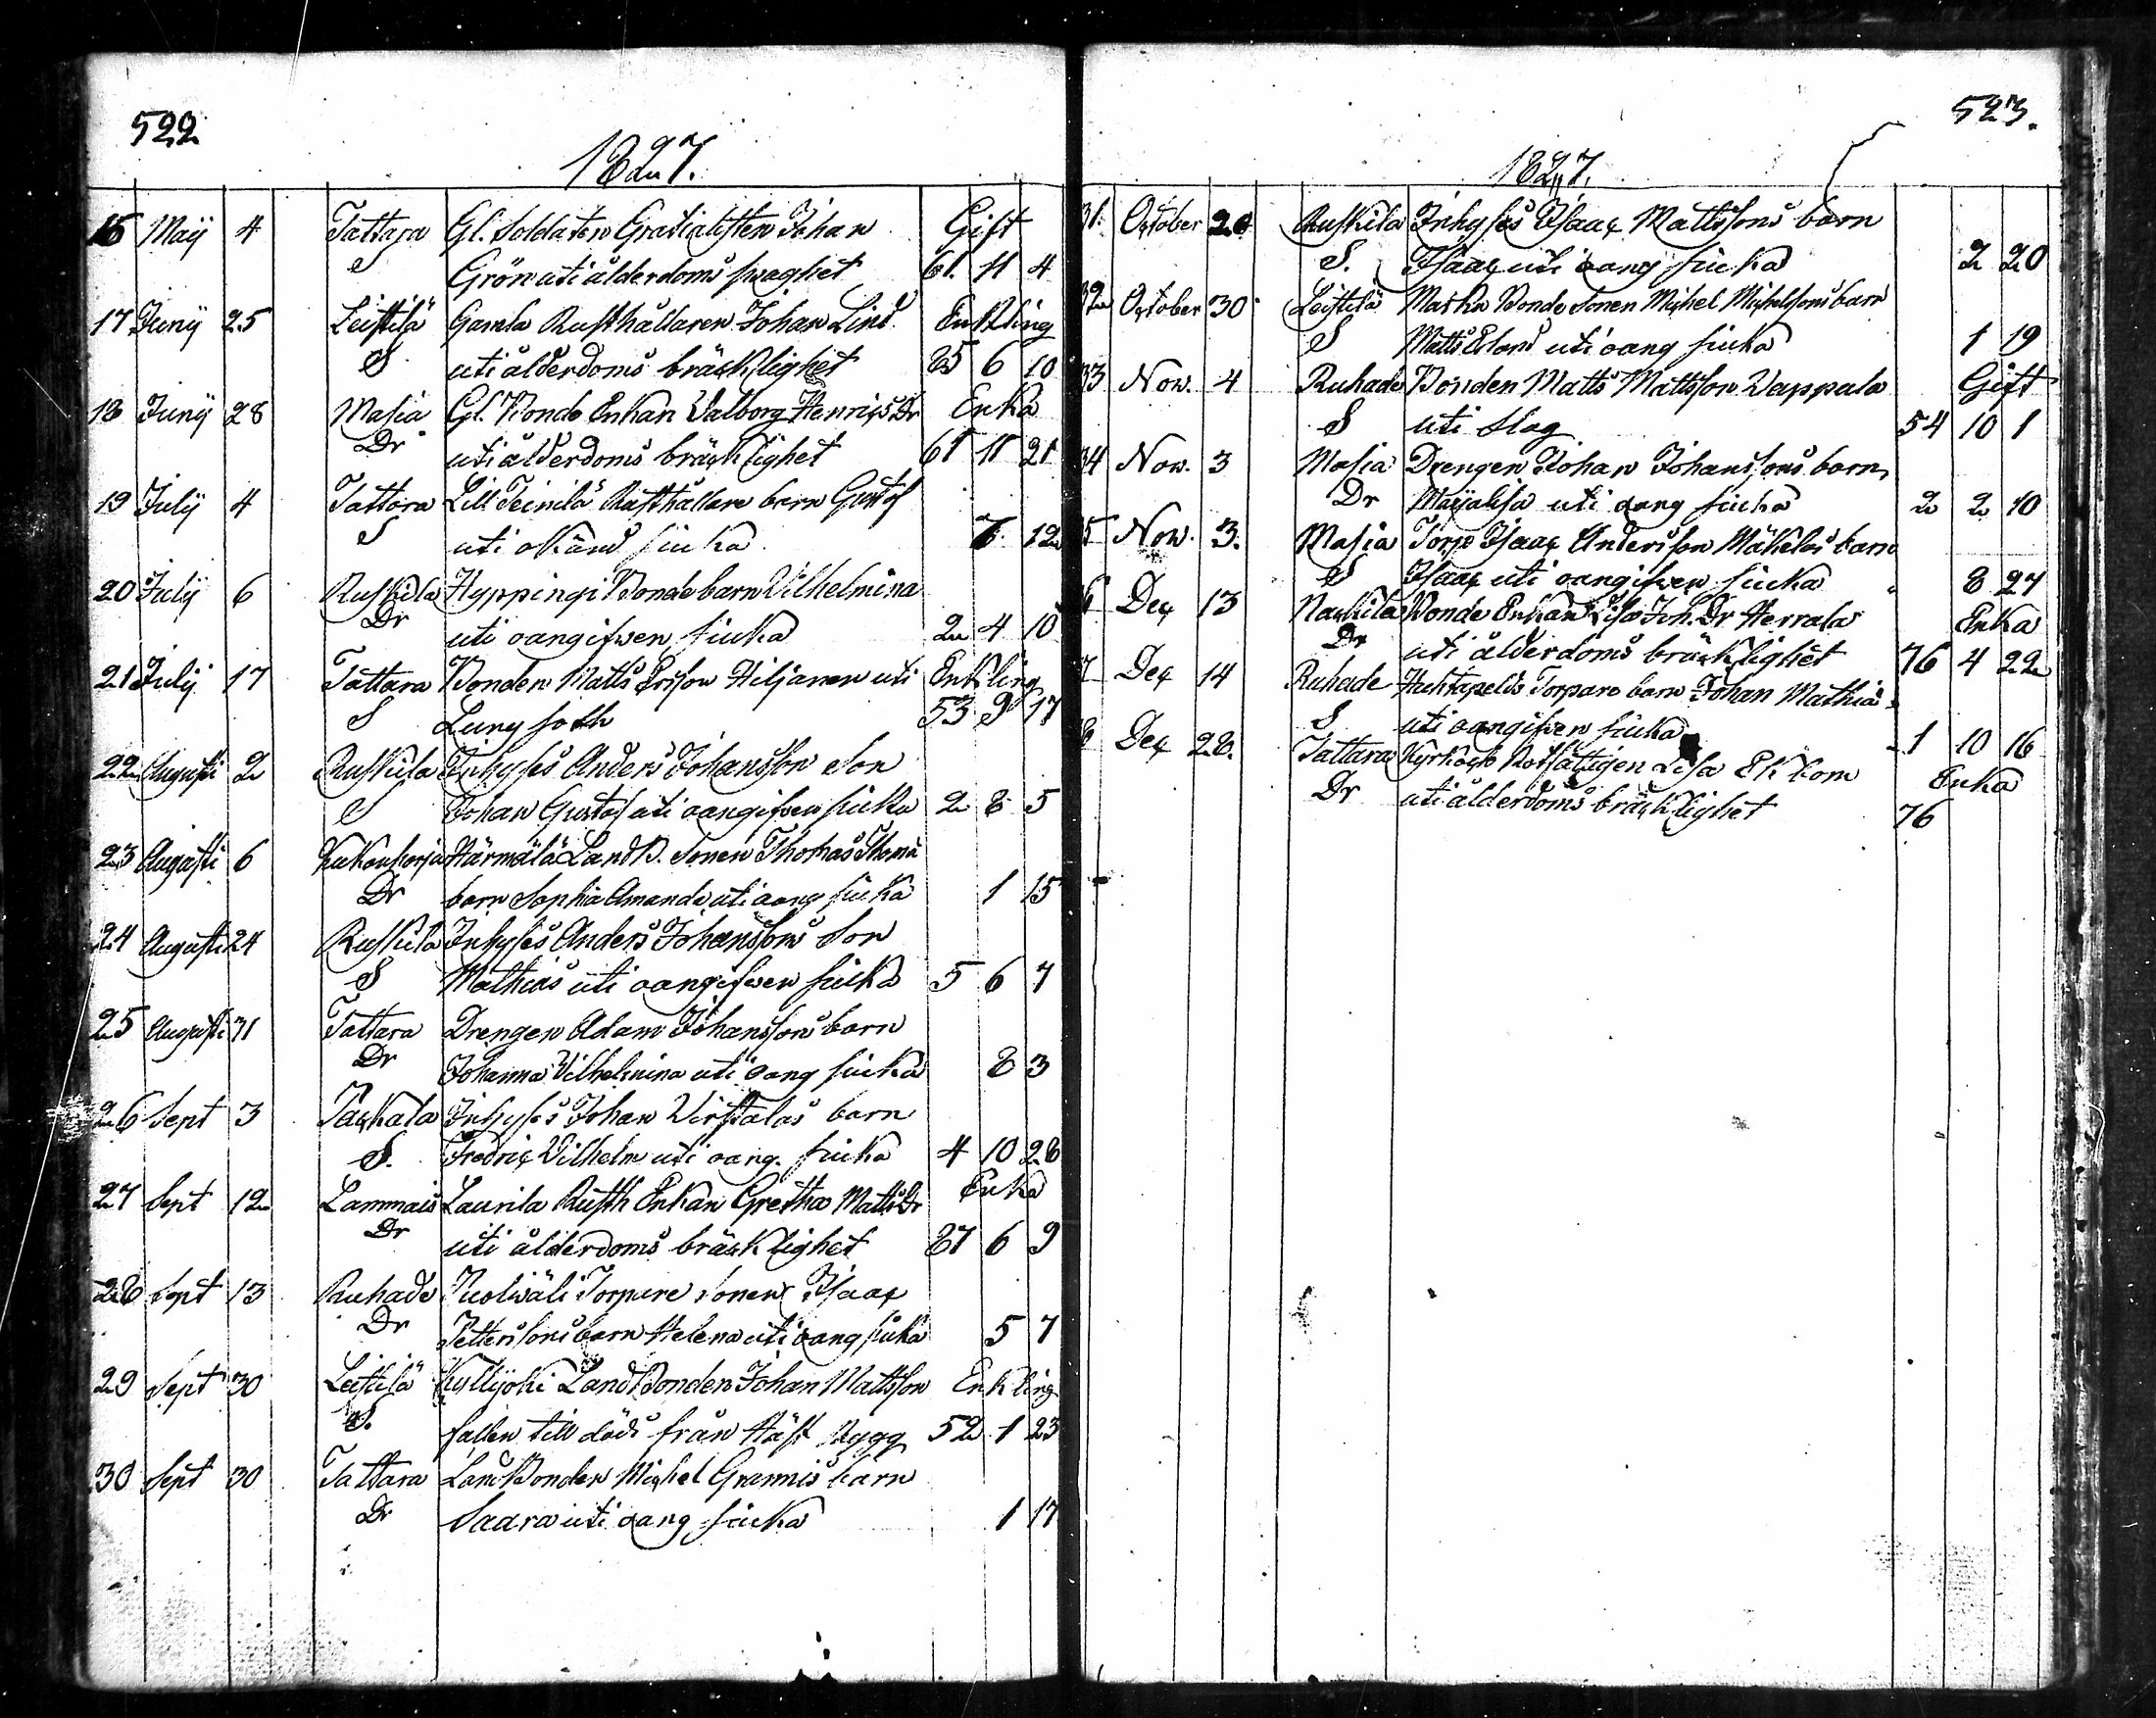 522
1827.
16 Maij 4 Tattara Gl. Soldaten Gratialisten Johan Gift
S Grön uti ålderdoms swaghet 61. 11 4
17 Junij 25 Leistilä Gamla Rusthållaren Johan Lind Enkling
S uti ålderdoms bräcklighet 85 6 10
18 Junij 28 Masia Gl. Bonde Enkan Walborg HenricsDr Enka
Dr uti ålderdoms bräcklighet 61 11 21
19 Julij 4 Tattara Lill Teinilä Rusthållare barn Gustof
S uti okänd siuka 7 12
20 Julij 6 Ruskila Hyppingi Bonde barn Vilhelmina
Dr uti oangifwen siuka 2 4 10
21 Julij 17 Tattara Bonden Matts Ersson Hiljanen uti Enkling
S Lung soth 53 9 17
22 Augusti 2 Ruskila Inhyses Anders Johansson Son
S Johan Gustaf uti oangifwen siuka 2 8 5
23 Augusti 6 Kukonharja Härmälä LandB. Sonen Thomas Thomæ
Dr barn Sophia Amanda uti oang siuka 1 15
24 Augusti 24 Ruskila Inhyses Anders Johanssons Son
S Mathias uti oangifwen siuka 5 6 7
25 Augusti 31 Tattara Drengen Adam Johanssons barn
Dr Johanna Vilhelmina uti oang siuka 8 3
26 Sept 3 Inhyses Johan Wirstalas barn
S. Fredric Vilhelm uti oang. siuka 4 10 28
27 Sept 12 Lammais Laurila Rusth Enkan Gretha MattsDr Enka
Dr uti ålderdoms bräcklighet 87 6 9
28 Sept 13 Ruhade Torpare Sonen Isaac
Dr Pettersons barn Helena uti oang siuka 5 7
29 Sept 30 Leistilä Kyllijoki LandBonden Johan Mattsson Enkling
S. fallen till döds från Häst Rygg 52 1 23
30 Sept 30 Tattara LandBonden Michel Grannis barn
Dr Saara uti oang siuka 1 17
523.
1827.
31. October 20 Ruskila Inhyses Isaac Mattssons barn
S. Isaac uti oang siuka 2 20
32 October 30 Leistilä Marka Bonde Sonen Michel Michelssons barn
S Matts Erland uti oang siuka 1 19
33 Now. 4 Ruhade Bonden Matts Mattsson Wappala Gift
S uti slag 54 10 1
34 Now. 3 Masia Drengen Johan Johanssons barn
Dr Maijalisa uti oang siuka 2 2 10
5 Now. 3. Masia Torp Isaac Andersson Mäkelas barn
S Isaac uti oangifwen siuka 8 27
6 Dec 13 Naskila Bonde Enkan Lisa Joh. Dr Herrala Enka
Dr uti ålderdoms bräcklighet 76 4 22
7 Dec 14 Ruhade Torpare barn Johan Mathias
S uti oangifwen siuka 1 10 16
8 Dec 28. Tattara Kyrkoby Rotfattigen Lisa Ekbom Enka
Dr uti ålderdoms bräcklighet 76